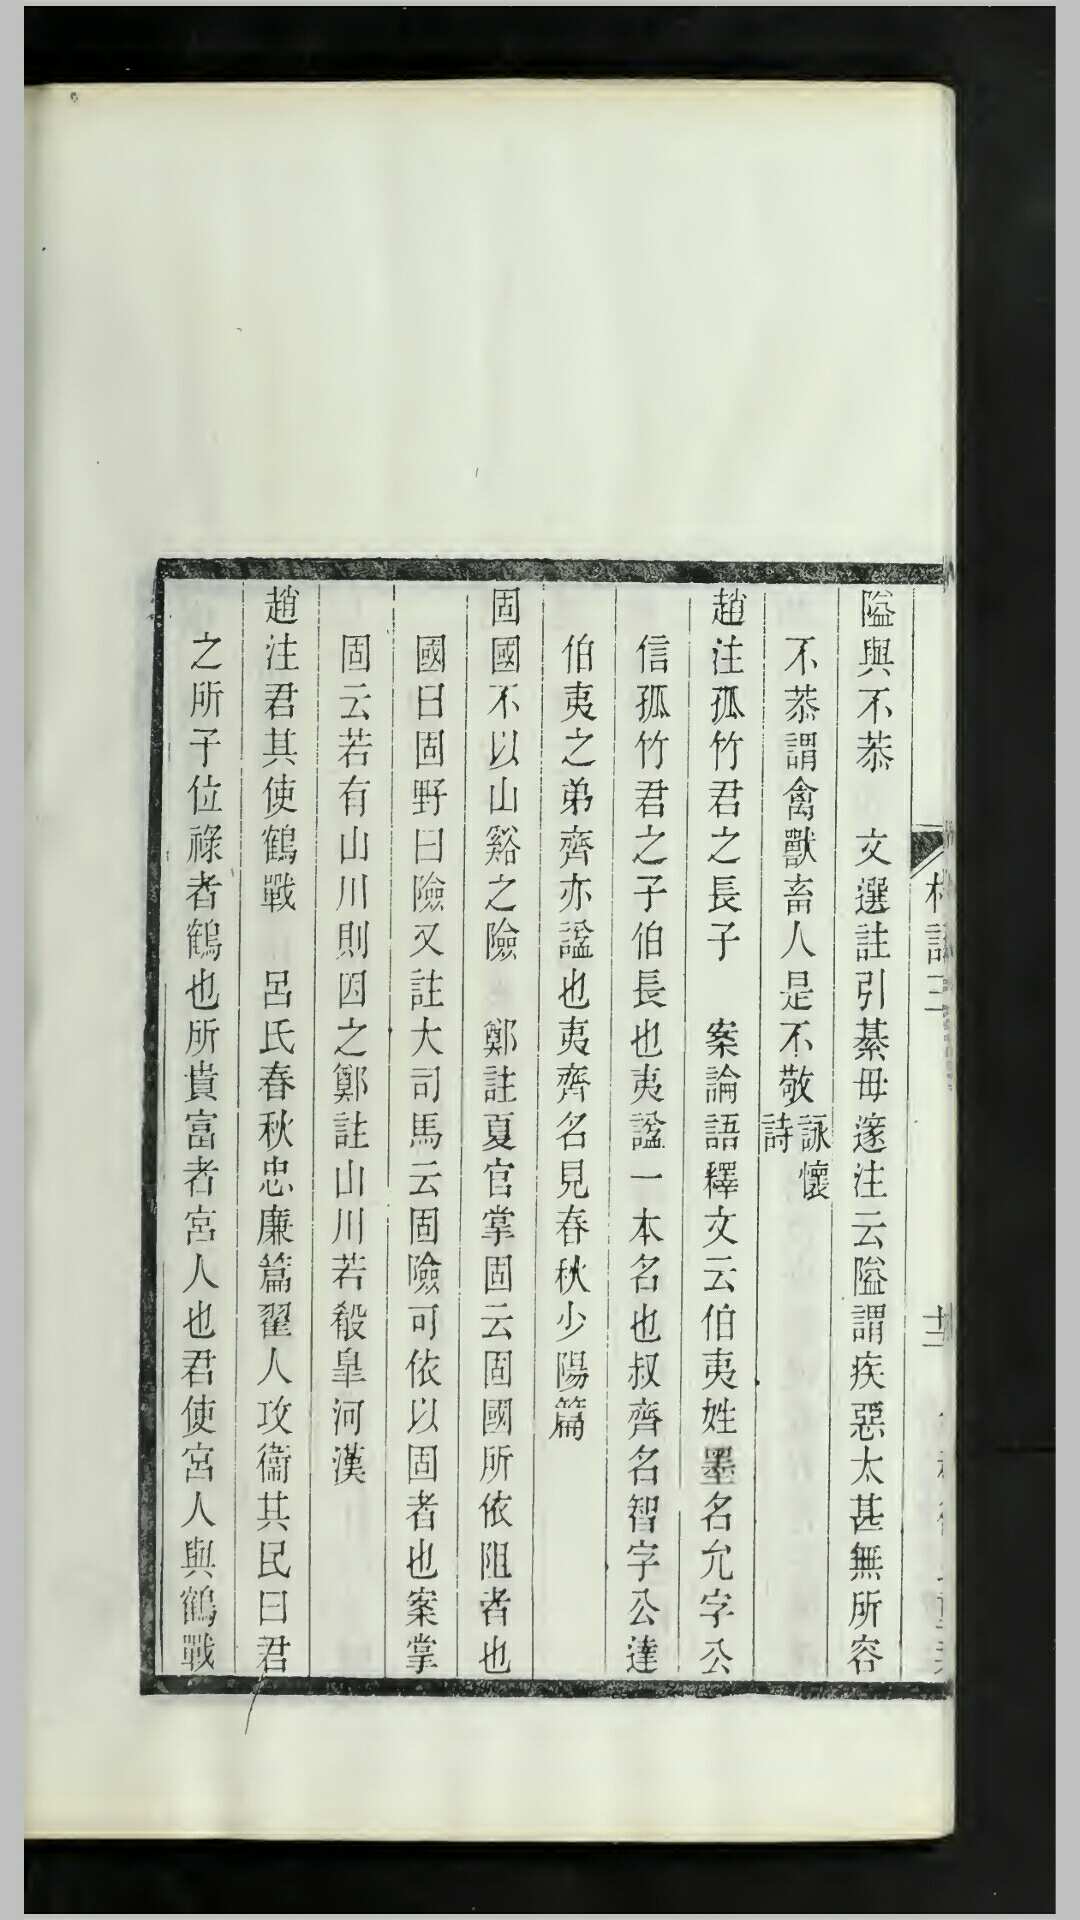 隘與不恭　文選註引綦毋邃注云隘謂疾惡太甚無所容
不恭謂禽獸畜人是不敬詠懷詩
趙注孤竹君之長子　案論語釋文云伯夷姓墨名允字公
信孤竹君之子伯長也夷諡一本名也叔齊名智字公達
伯夷之弟齊亦諡也夷齊名見春秋少陽篇
固國不以山谿之險　鄭註夏官掌固云固國所依阻者也
國曰固野曰險又註大司馬云固險可依以固者也案掌
固云若有山川則因之鄭註山川若殽皐河漢
趙注君其使鶴戰　呂氏春秋忠廉篇翟人攻衞其民曰君
之所予位祿者鶴也所貴富者宮人也君使宮人與鶴戰